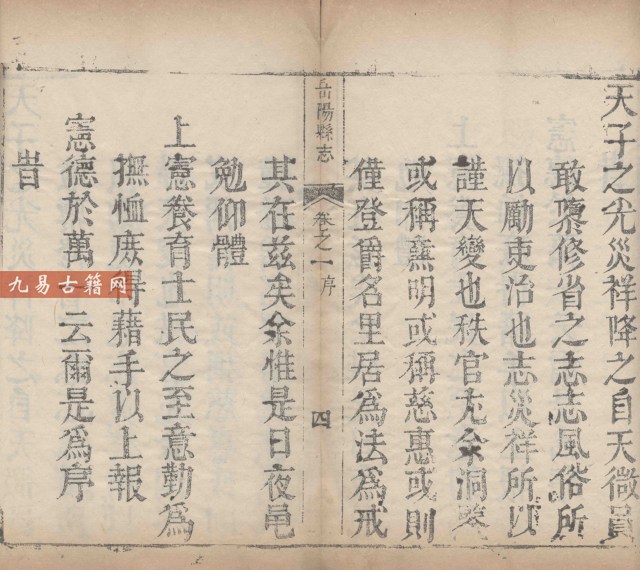 天子之光災祥降之自天微員
敢隳修省之志志風俗所
以勵吏治也志災祥所以
謹天變也秩官尤余洞鑒
或稱廉明或稱慈惠或則
僅登爵名里居為法為戒
岳陽縣志
卷之一 序
四
其在茲矣余惟是日夜邑
勉仰體
上憲養育士民之至意勤為
撫恤庶得藉手以上報
憲德於萬一云爾是為序
旹
九易古籍网